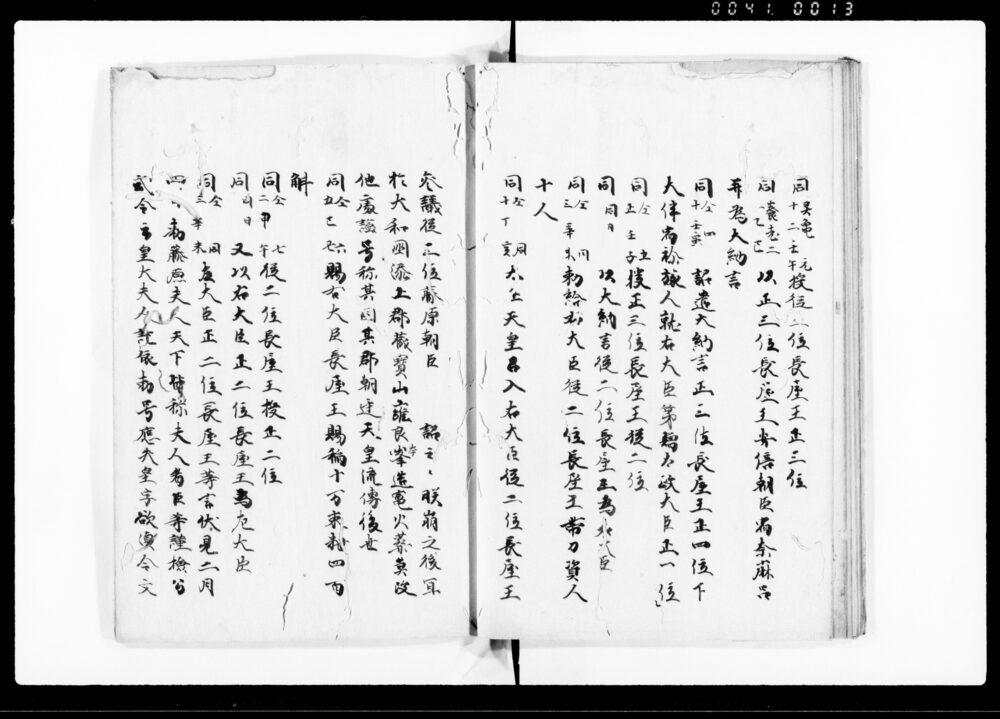 0041.0013
同 霊亀元 十二壬午 授従三位長屋王正三位
同 養老二 乙巳 以正三位長屋王安倍朝臣宿奈麻呂
並為大納言
同 仝四 十壬寅 詔遣大納言正三位長屋王正四位下
大伴宿祢旅人就右大臣第贈太政大臣正一位
同 仝五 正壬子 授正三位長屋王従二位
同 同日 以大納言従二位長屋王為右大臣
同 仝同 三辛未 勅給右大臣従二位長屋王帯刀資人
十人
同 仝同 十丁亥 太上天皇召入右大臣従二位長屋王
参議従三位藤原朝臣 詔之 朕崩之後宜
於大和国添上郡蔵宝山雍良岑造竈火葬莫改
他處謚号称其国其郡朝廷天皇流傳後世
同 仝六 五己卯 賜右大臣長屋王賜稲十万束籾四百
斛
同 仝七 二甲午 従二位長屋王授正二位
同 同日 又以右大臣正二位長屋王為左大臣
同 仝同 三辛未 左大臣正二位長屋王等言伏見二月
四日勅藤原夫人天下皆称夫人者臣等謹撿公
式令云皇大夫人 依勅号應失皇字欲須令文